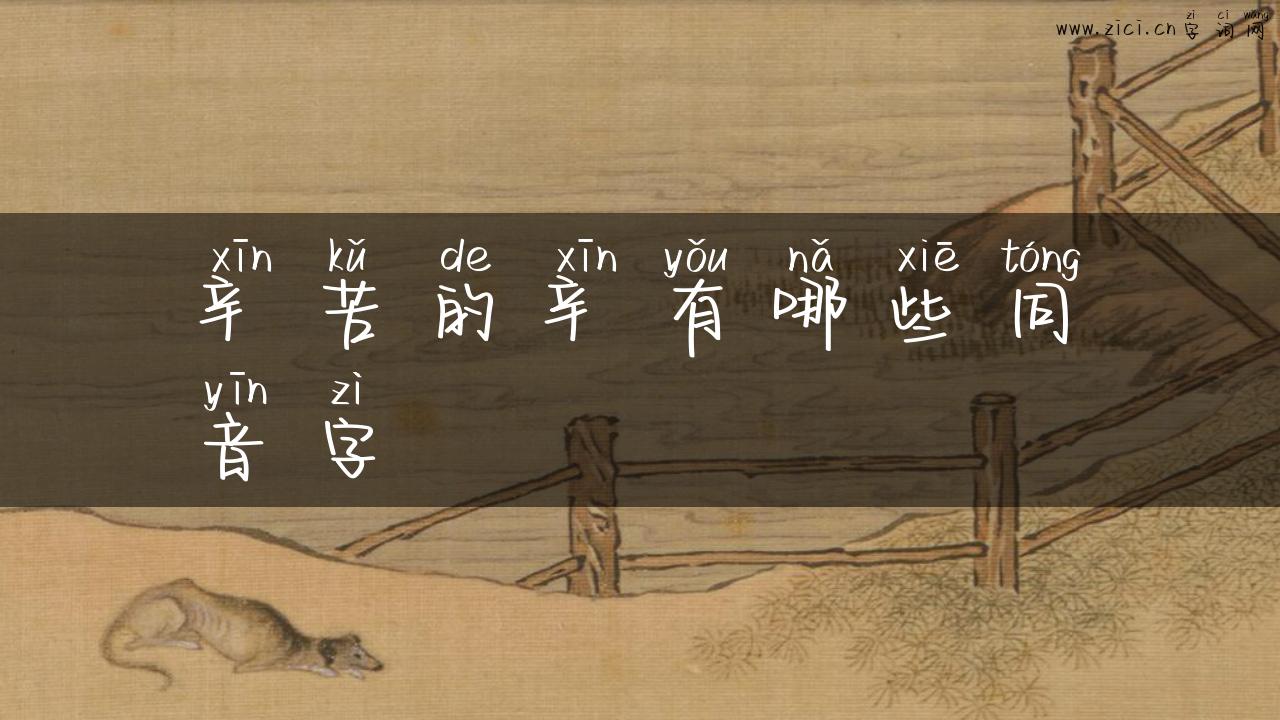 zì cí wǎng
www.zici.cn字词网
xīn kǔ de xīn yǒu nǎ xiē tóng
辛苦的辛有哪些同
yīn zì
音字